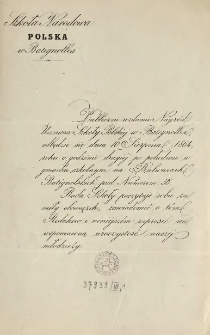 Szkoła Narodowa
POLSKA
w Batignolles
Publiczne rozdanie Nagród
Uczniom Szkoły Polskiej w Batignolles,
odbędzie się dnia 10 Sierpnia 1864
roku o godzinie drugiej po południu w
gmachu szkolnym na Bulwarach
Batignolskich pod Numerem
Rada Szkoły poczytuje sobie za
miły obowiązek, zawiadomić o tém
i niniejszém zaprosić na
wspomnioną uroczystość naszej
młodzieży